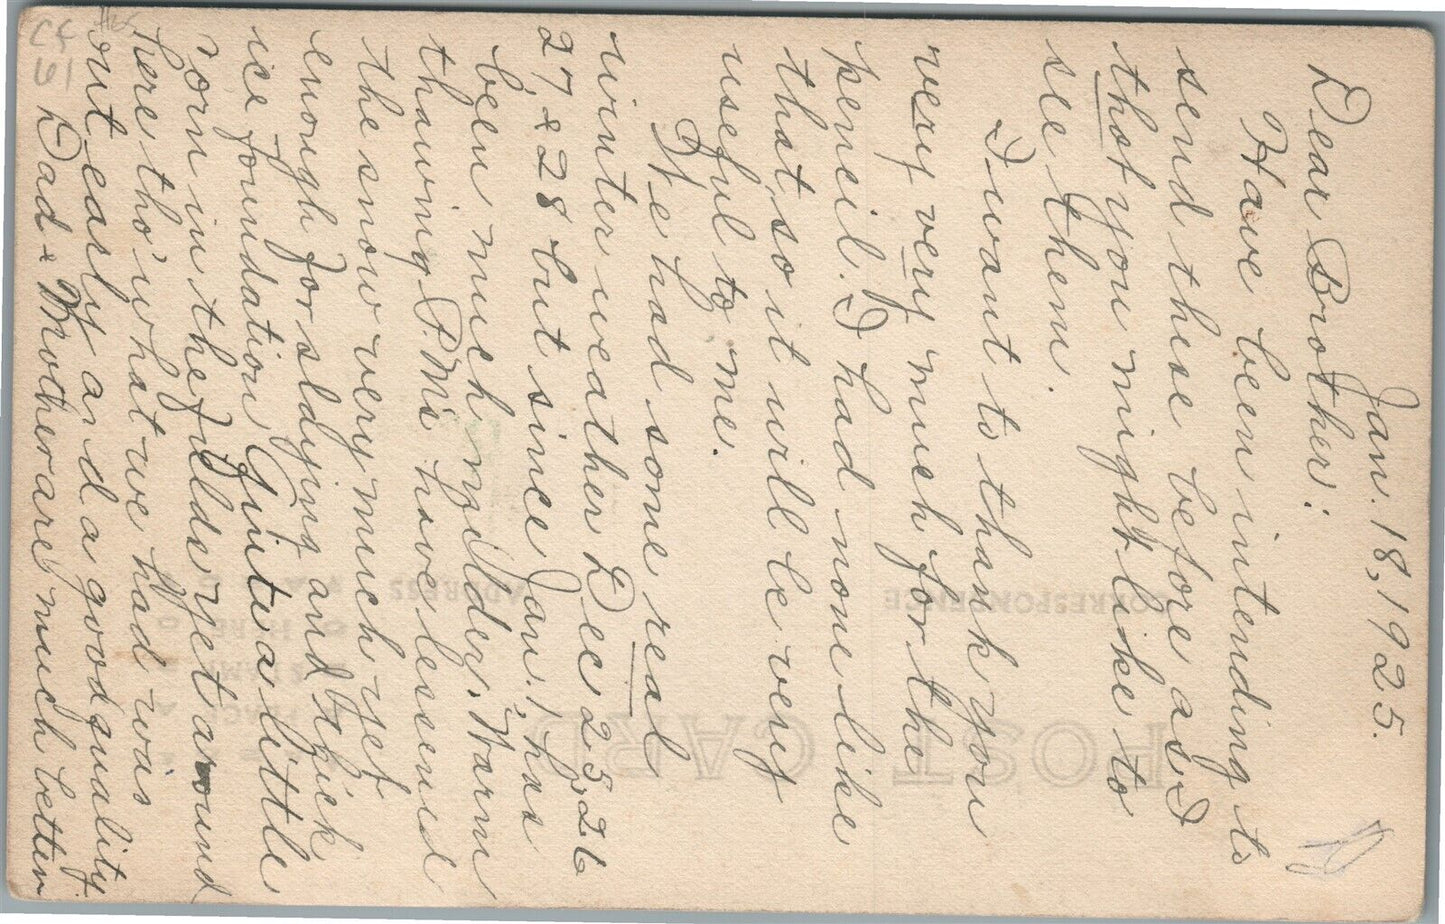 Jan. 18, 1925.
Dear Brother:
Have been intending to
send these before as I
thot you might like to
see them.
I want to thank you
very very much for the
pencil. I had none like
that so it will be very
useful to me.
We had some real
winter weather Dec 25, 26
27, & 28 but since Jan. 1 has
been much milder. Warm
thawing P.M's have lessened
the snow very much yet
enough for sleighing and thick
ice foundation. Quite a little
corn in the fields yet around
here tho' what we had was
out early and a good quality.
Dad & Mother are much better
POST CARD
CORRESPONDENCE
ADDRESS
PLACE
STAMP
HERE